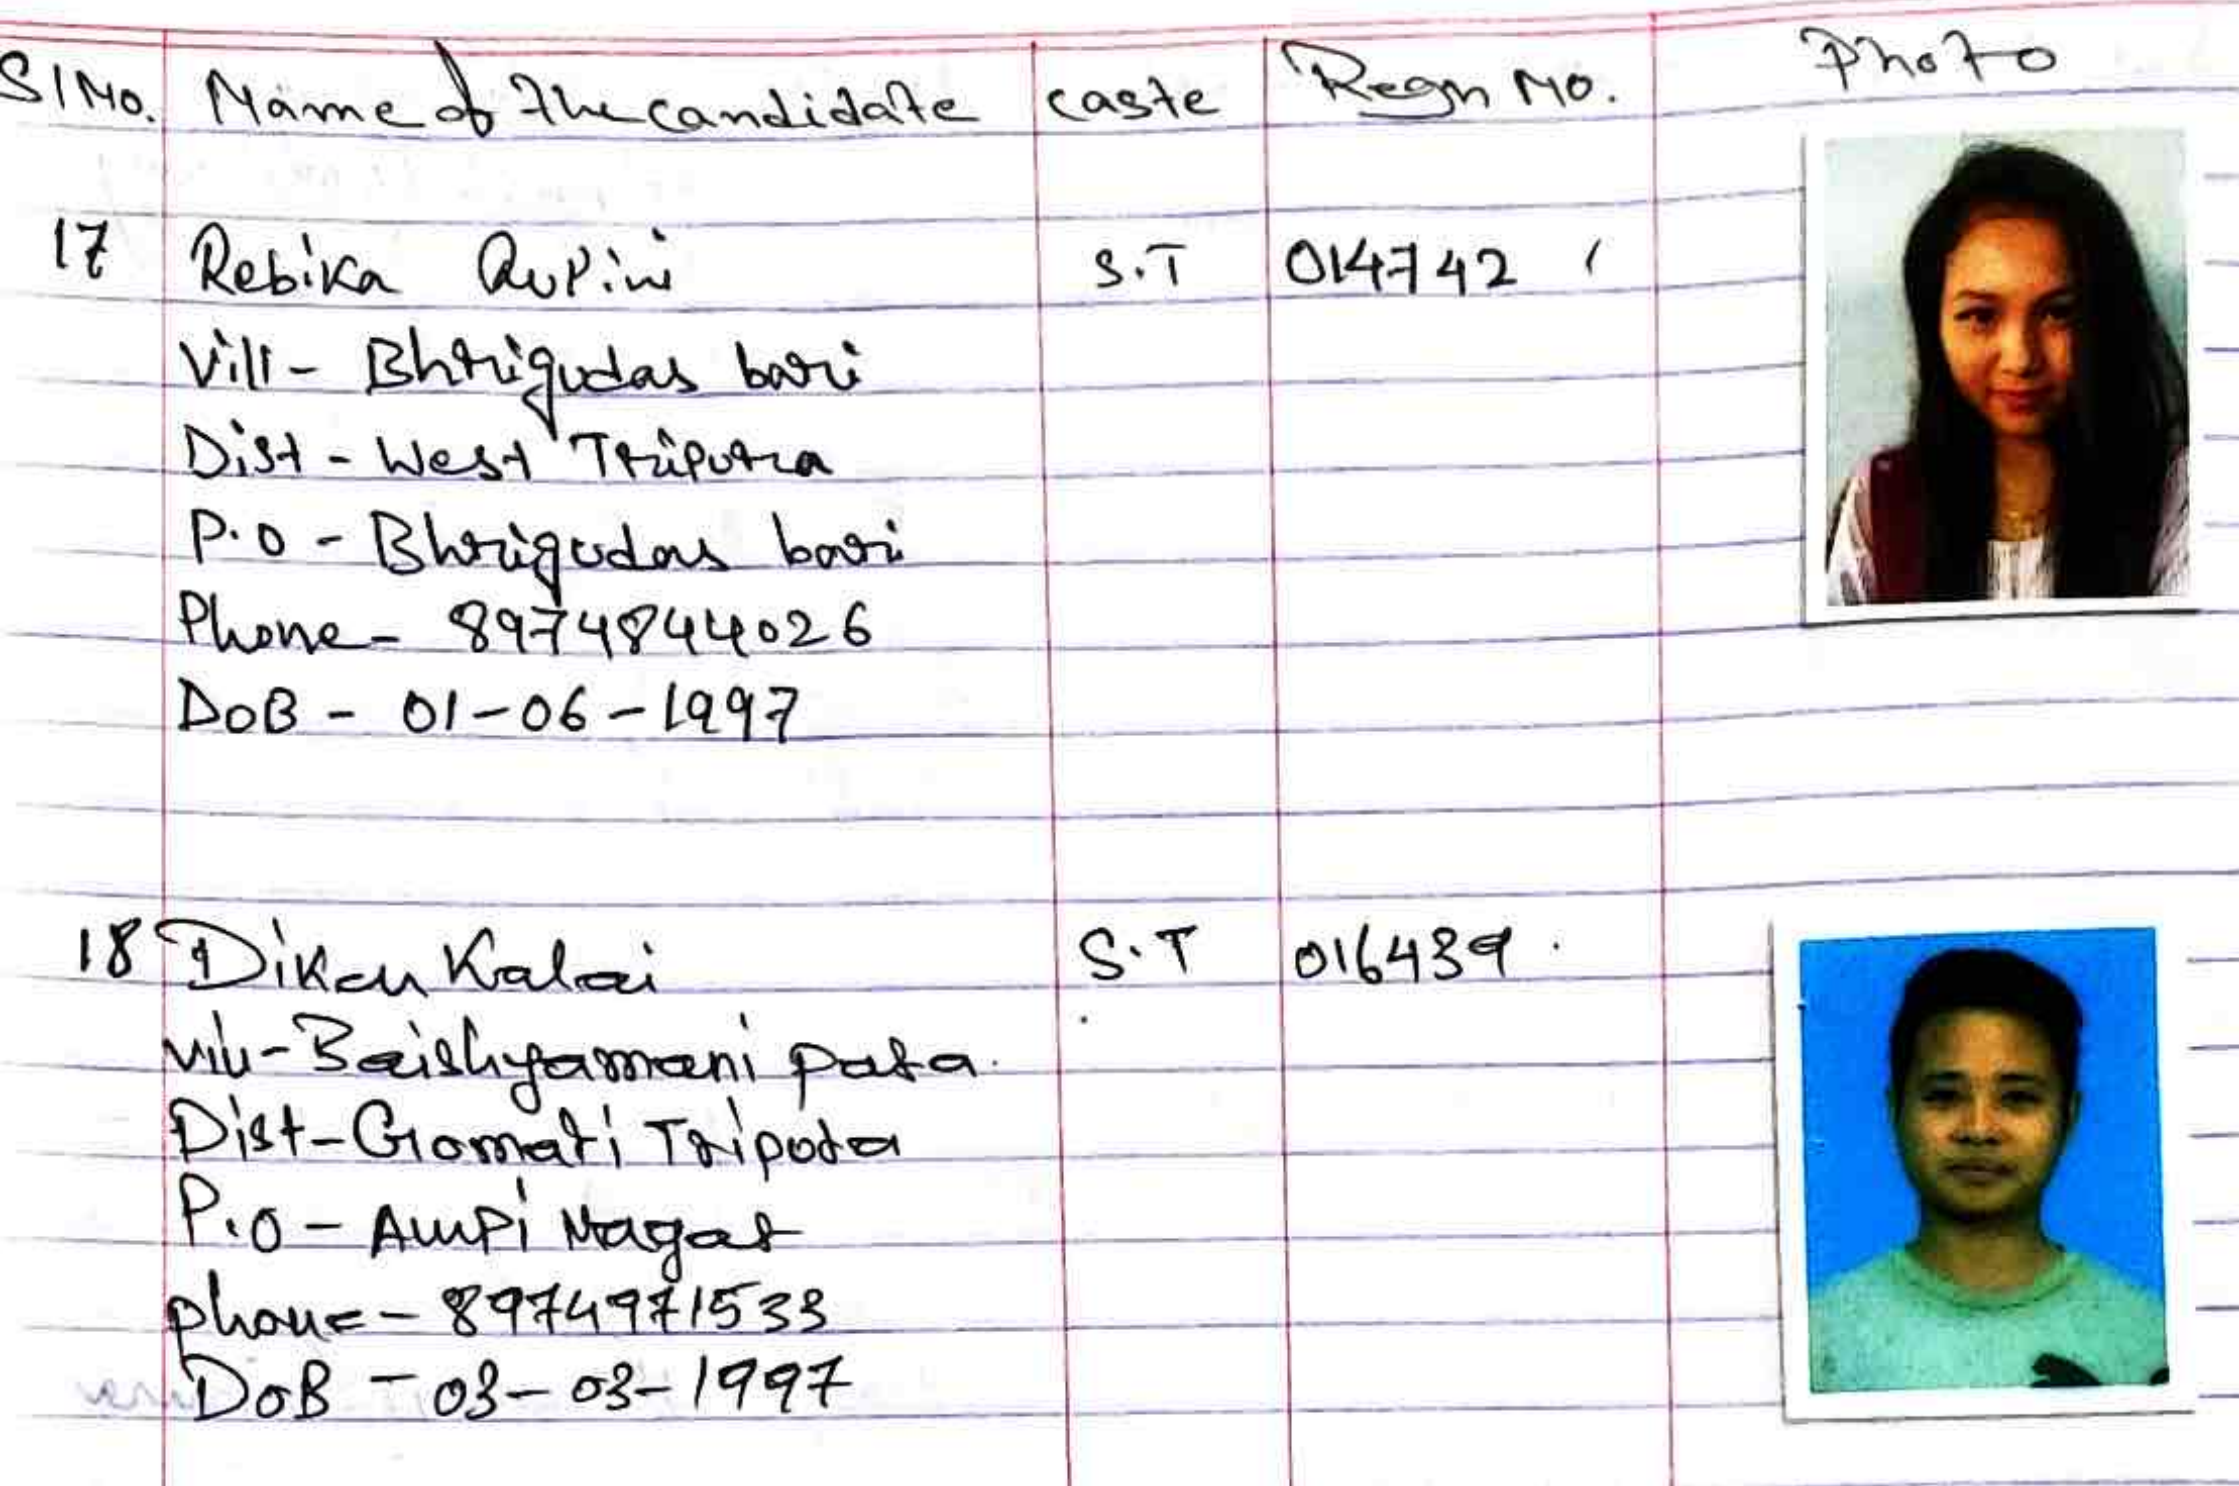 Sl No. Name of the candidate caste Regn No. Photo
17 Rebika Rupini S.T 014742
Vill - Bhrigudas bari
Dist - West Tripura
P.O - Bhrigudas bari
Phone - 8974844026
DOB - 01-06-1997
18 Dikan Kalai S.T 016439
Vill - Baishyamani para
Dist - Gomati Tripura
P.O - Ampi Nagar
phone - 8974971533
DOB - 03-03-1997